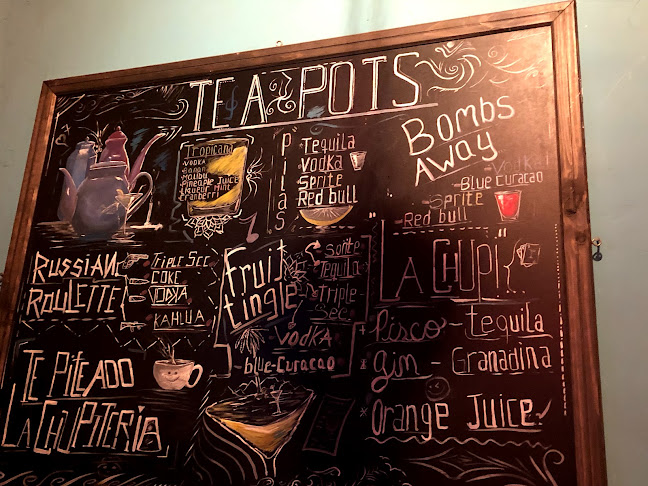 TEA POTS
Tropicana
VODKA
Banana
Malibu
Pineapple Juice
Liqueur Mint
Cranberri
PILAS
Tequila
Vodka
Sprite
Red bull
BOMBS
AWAY
Vodka
Blue Curacao
Sprite
Red bull
RUSSIAN
ROULETTE
Triple Sec
COKE
VODKA
KAHLUA
Fruit
tingle
Tequila
Triple-
sec
VODKA
blue-Curacao
"LA CHUPI"
Pisco - tequila
gin - Granadina
* Orange Juice
TE PITEADO
LA CHUPITERIA